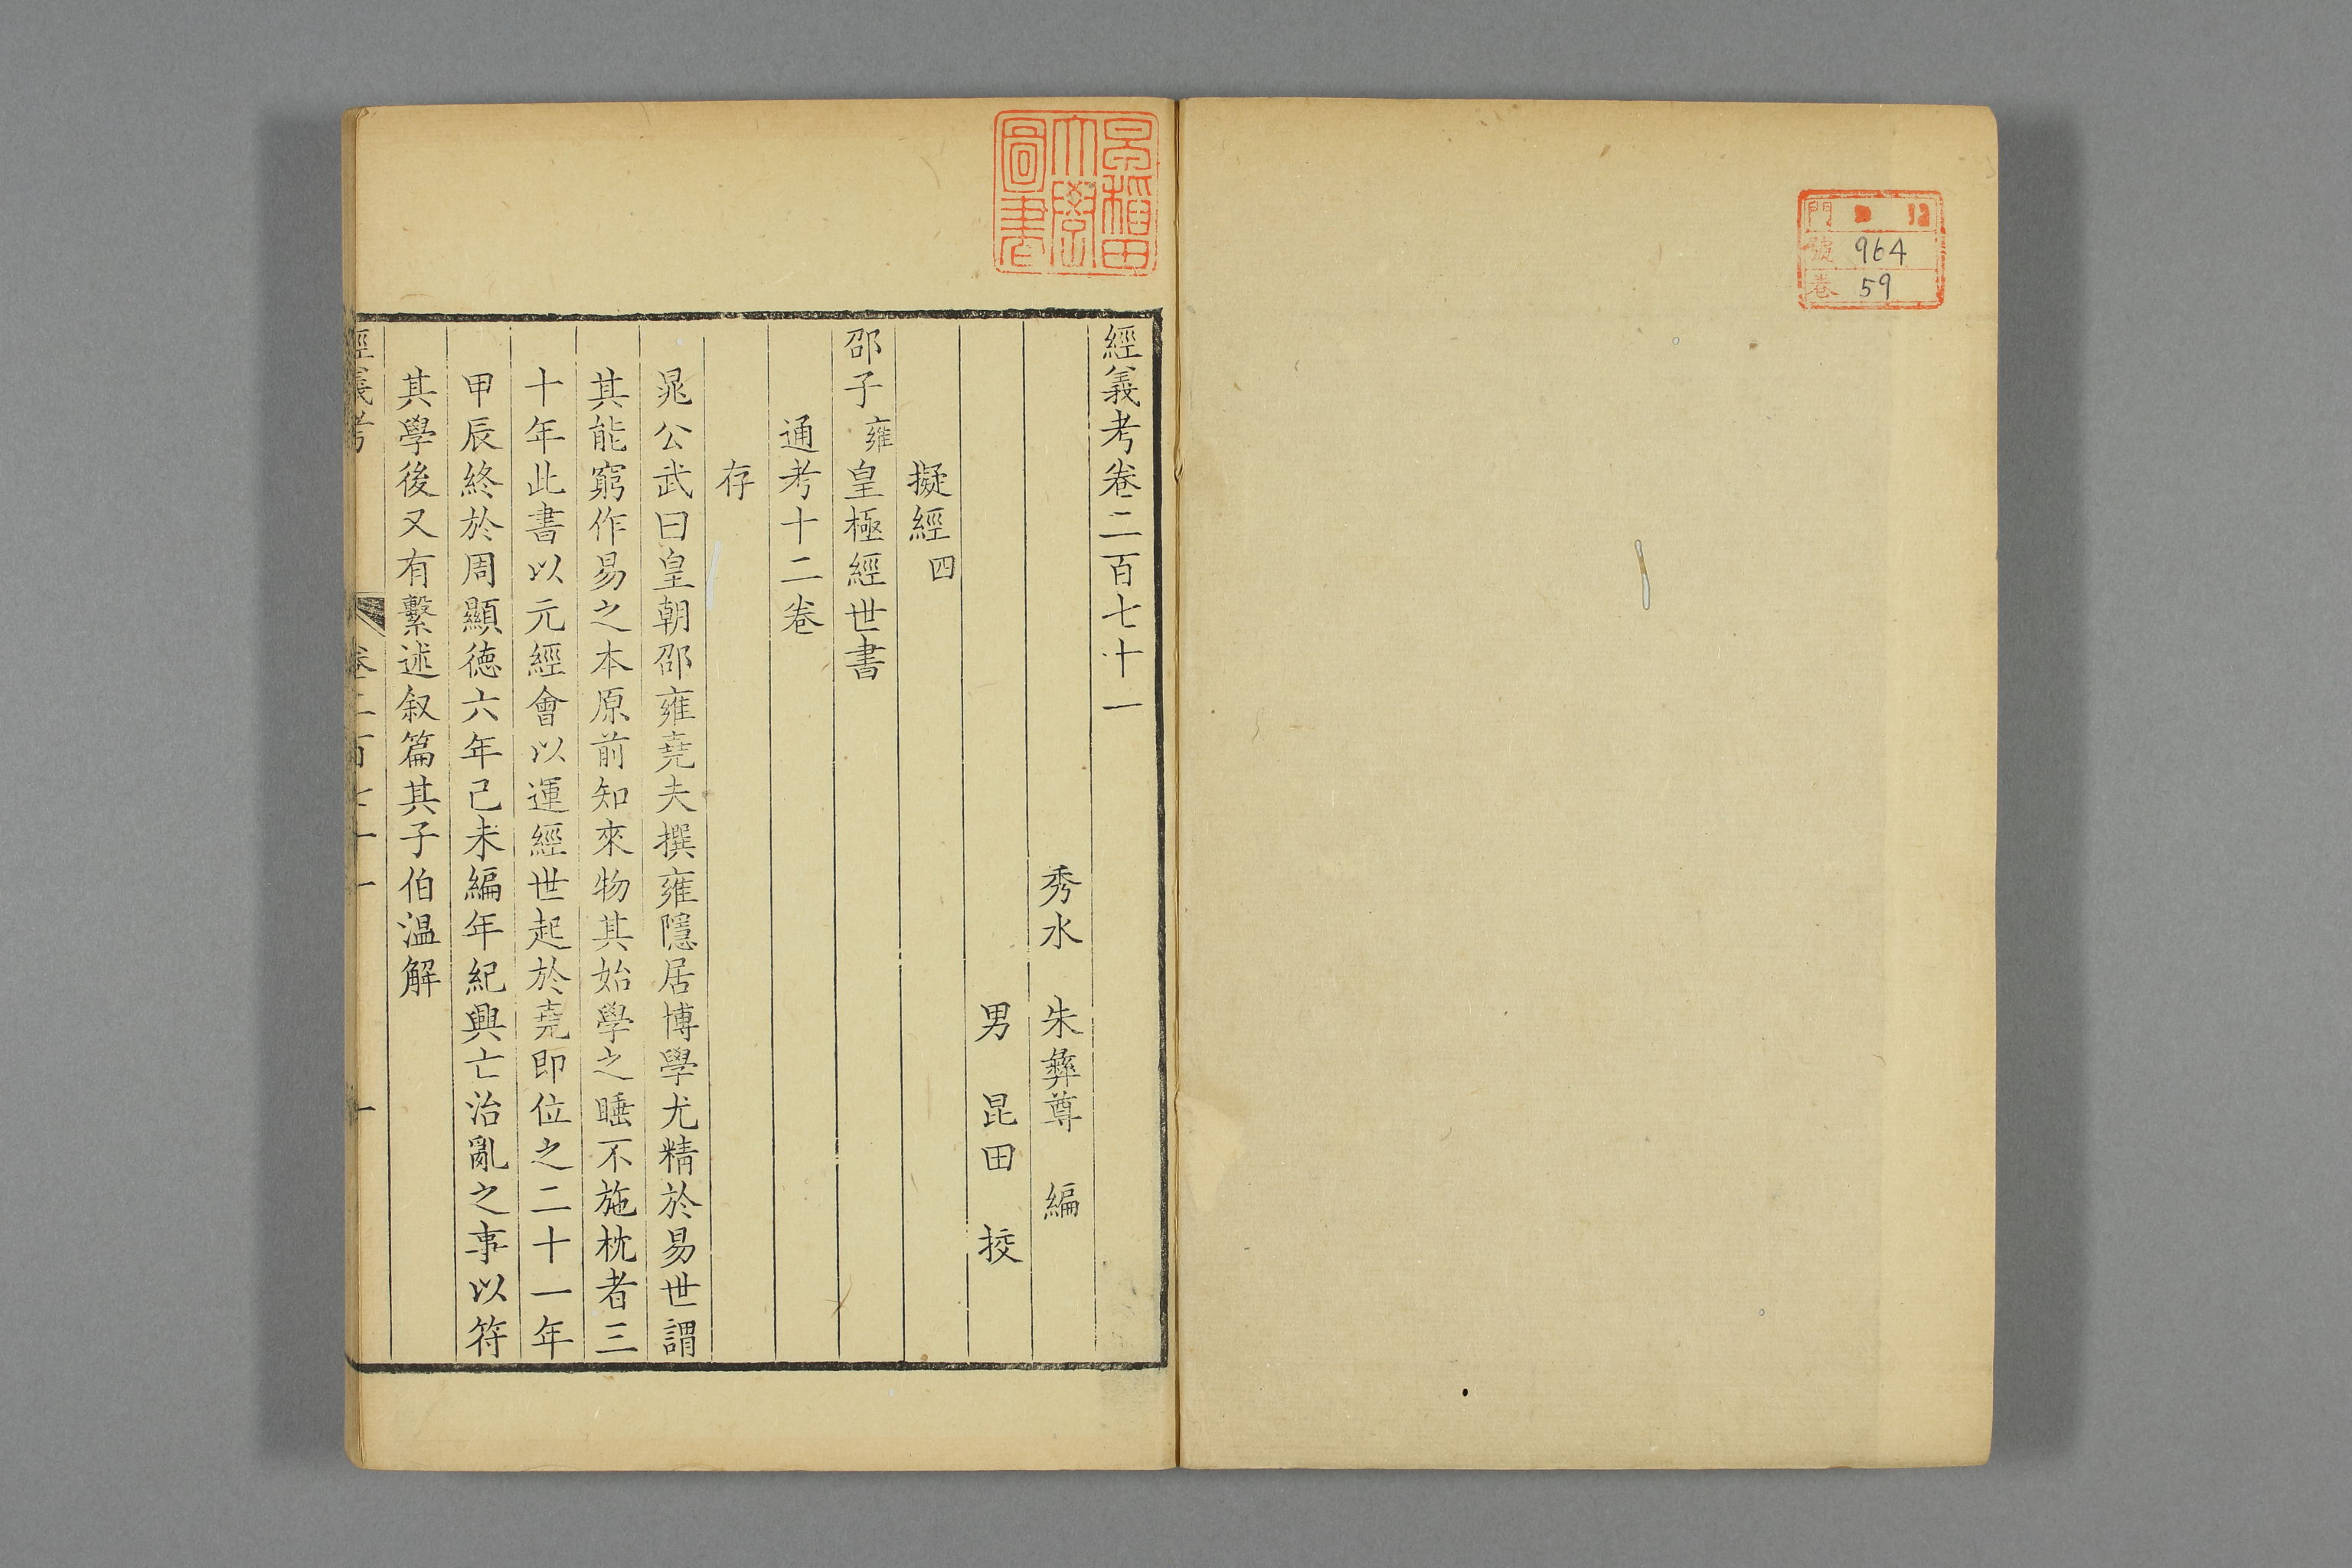 門 12
號 964
卷 59
早稻田
大學
圖書
經義考卷二百七十一
秀水 朱彝尊 編
男 昆田 挍
擬經四
邵子雍皇極經世書
通考十二卷
存
晁公武曰皇朝邵雍堯夫撰雍隱居博學尤精於易世謂
其能窮作易之本原前知來物其始學之睡不施枕者三
十年此書以元經會以運經世起於堯即位之二十一年
甲辰終於周顯德六年己未編年紀興亡治亂之事以符
其學後又有繫述叙篇其子伯温解
經義考 卷二百七十一 一